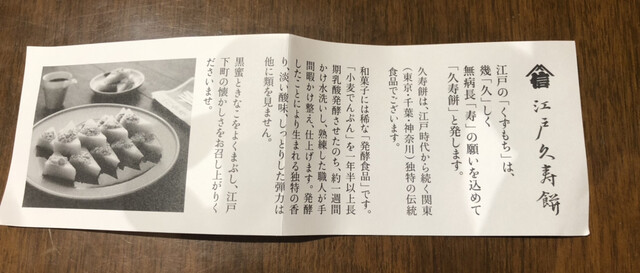 江戸久寿餅
江戸の「くずもち」は、
幾「久」しく
無病長「寿」の願いを込めて
「久寿餅」と発します。
久寿餅は、江戸時代から続く関東
(東京・千葉・神奈川)独特の伝統
食品でございます。
和菓子には稀な「発酵食品」です。
「小麦でんぷん」を一年半以上長
期乳酸発酵させたのち、約一週間
かけ水洗いし、熟練した職人が手
間暇かけ整え、仕上げます。発酵
したことにより生まれる独特の香
り、淡い酸味、しっとりした弾力は
他に類を見ません。
黒蜜ときなこをよくまぶし、江戸
下町の懐かしさをお召し上がりく
ださいませ。